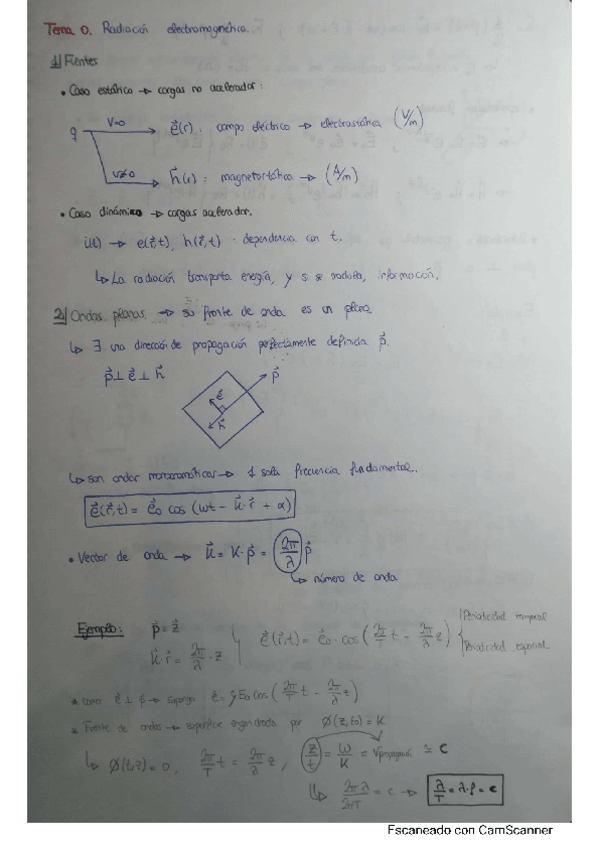 Tema 0. Radiación electromagnética.
1) Fuentes
• Caso estático → cargas no aceleradas:
q V=0 → e⃗(r): campo eléctrico → electrostática (V/m)
V≠0 → h⃗(r): magnetostática → (A/m)
• Caso dinámico → cargas aceleradas.
i(t) → e(r⃗,t), h(r⃗,t) · dependencia con t.
↳ La radiación transporta energía, y si se modula, información.
2) Ondas planas → su frente de onda es un plano
↳ ∃ una dirección de propagación perfectamente definida p⃗.
p⃗ ⊥ e⃗ ⊥ h⃗
e⃗ h⃗ p⃗
↳ son ondas monocromáticas → 1 sola frecuencia fundamental.
e⃗(r⃗,t) = e⃗₀ cos (ωt - k⃗·r⃗ + α)
• Vector de onda → k⃗ = k·p⃗ = (2π/λ) p⃗
↳ número de onda
Ejemplo: p⃗ = z⃗
k⃗·r⃗ = 2π/λ · z
e⃗(r⃗,t) = e⃗₀ · cos (2π/T t - 2π/λ z)
Periodicidad temporal
Periodicidad espacial
* como e⃗ ⊥ p⃗ → supongo e⃗ = ŷ E₀ cos (2π/T t - 2π/λ z)
* Frente de ondas → superficie engendrada por Ø(z,t₀) = K
↳ Ø(t,z) = 0, 2π/T t = 2π/λ z, z/t = ω/K = Vpropagación ≃ c
↳ 2πλ/2πT = c → λ/T = λ·f = c
Escaneado con CamScanner